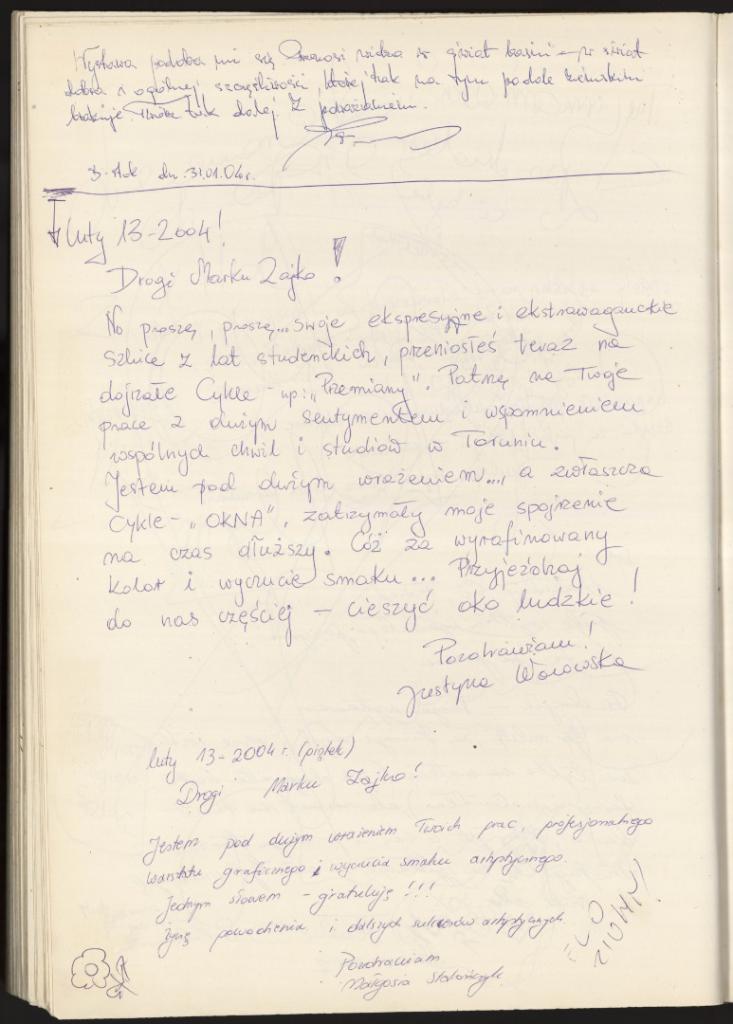 Wystawa podoba mi się Przenosi widza w świat baśni – w świat
dobra i ogólnej szczęśliwości, której tak na tym padole ziemskim
brakuje. tak dalej Z poważaniem.
B-stok dn. 31.01.04r.
luty 13-2004!
Drogi Marku Zajko!
No proszę, proszę... swoje ekspresyjne i ekstrawaganckie
szkice z lat studenckich, przeniosłeś teraz na
dojrzałe Cykle - np: „Przemiany". Patrzę na Twoje
prace z dużym sentymentem i wspomnieniem
wspólnych chwil i studiów w Toruniu.
Jestem pod dużym wrażeniem..., a zwłaszcza
Cykle - „OKNA", zatrzymały moje spojrzenie
na czas dłuższy. Cóż za wyrafinowany
kolor i wyczucie smaku... Przyjeżdżaj
do nas częściej – cieszyć oko ludzkie!
Pozdrawiam!
Justyna
luty 13-2004 r. (piątek)
Drogi Marku Zajko!
Jestem pod dużym wrażeniem Twoich prac, profesjonalnego
warsztatu graficznego i wyczucia smaku artystycznego.
Jednym słowem - gratuluję!!!
Życzę powodzenia i dalszych sukcesów artystycznych.
Pozdrawiam
Małgosia